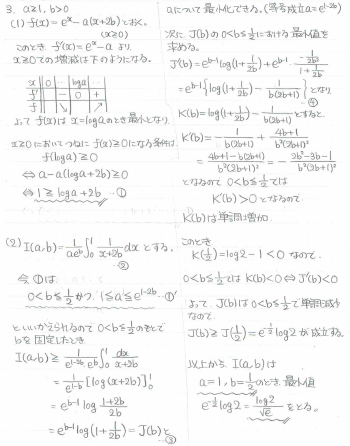 3. a≧1, b>0
(1) f(x)=e^x-a(x+2b)とおく。
(x≧0)
このとき f'(x)=e^x-a より
x≧0での増減は下のようになる。
x 0 … log a …
f' - 0 +
f ↘ ↗
よって f(x)は x=log aのとき最小となり
x≧0においてつねに f(x)≧0になる条件は
f(log a)≧0
⇔ a-a(log a+2b)≧0
⇔ 1≧log a+2b …①
(2) I(a,b)=\frac{1}{ae^b}∫_0^1 \frac{1}{x+2b}dx とする。
②
今 ①は
0<b≦\frac{1}{2}かつ 1≦a≦e^{1-2b} …①'
といいかえられるので 0<b≦\frac{1}{2}のもとで
bを固定したとき
I(a,b)≧\frac{1}{e^{1-2b}e^b}∫_0^1 \frac{dx}{x+2b}
=\frac{1}{e^{1-b}}[log(x+2b)]_0^1
=e^{b-1}log\frac{1+2b}{2b}
=e^{b-1}log(1+\frac{1}{2b})=J(b)と
③
aについて最小化できる。(等号成立a=e^{1-2b})
次に J(b)の0<b≦\frac{1}{2}における最小値を
求める。
J'(b)=e^{b-1}log(1+\frac{1}{2b})+e^{b-1}\frac{-\frac{1}{2b^2}}{1+\frac{1}{2b}}
=e^{b-1}{log(1+\frac{1}{2b})-\frac{1}{b(2b+1)}}となり
④
K(b)=log(1+\frac{1}{2b})-\frac{1}{b(2b+1)}とすると
K'(b)=-\frac{1}{b(2b+1)}+\frac{4b+1}{b^2(2b+1)^2}
=\frac{4b+1-b(2b+1)}{b^2(2b+1)^2}=-\frac{2b^2-3b-1}{b^2(2b+1)^2}
となるので 0<b≦\frac{1}{2}では
K'(b)>0 となるので
K(b)は単調増加.
このとき
K(\frac{1}{2})=log2-1<0 なので
0<b≦\frac{1}{2}では K(b)<0⇔J'(b)<0
よって J(b)は0<b≦\frac{1}{2}で単調減少
なので
J(b)≧J(\frac{1}{2})=e^{-\frac{1}{2}}log2が成立する。
以上から I(a,b)は
a=1, b=\frac{1}{2}のとき 最小値
e^{-\frac{1}{2}}log2=\frac{log2}{\sqrt{e}}をとる。